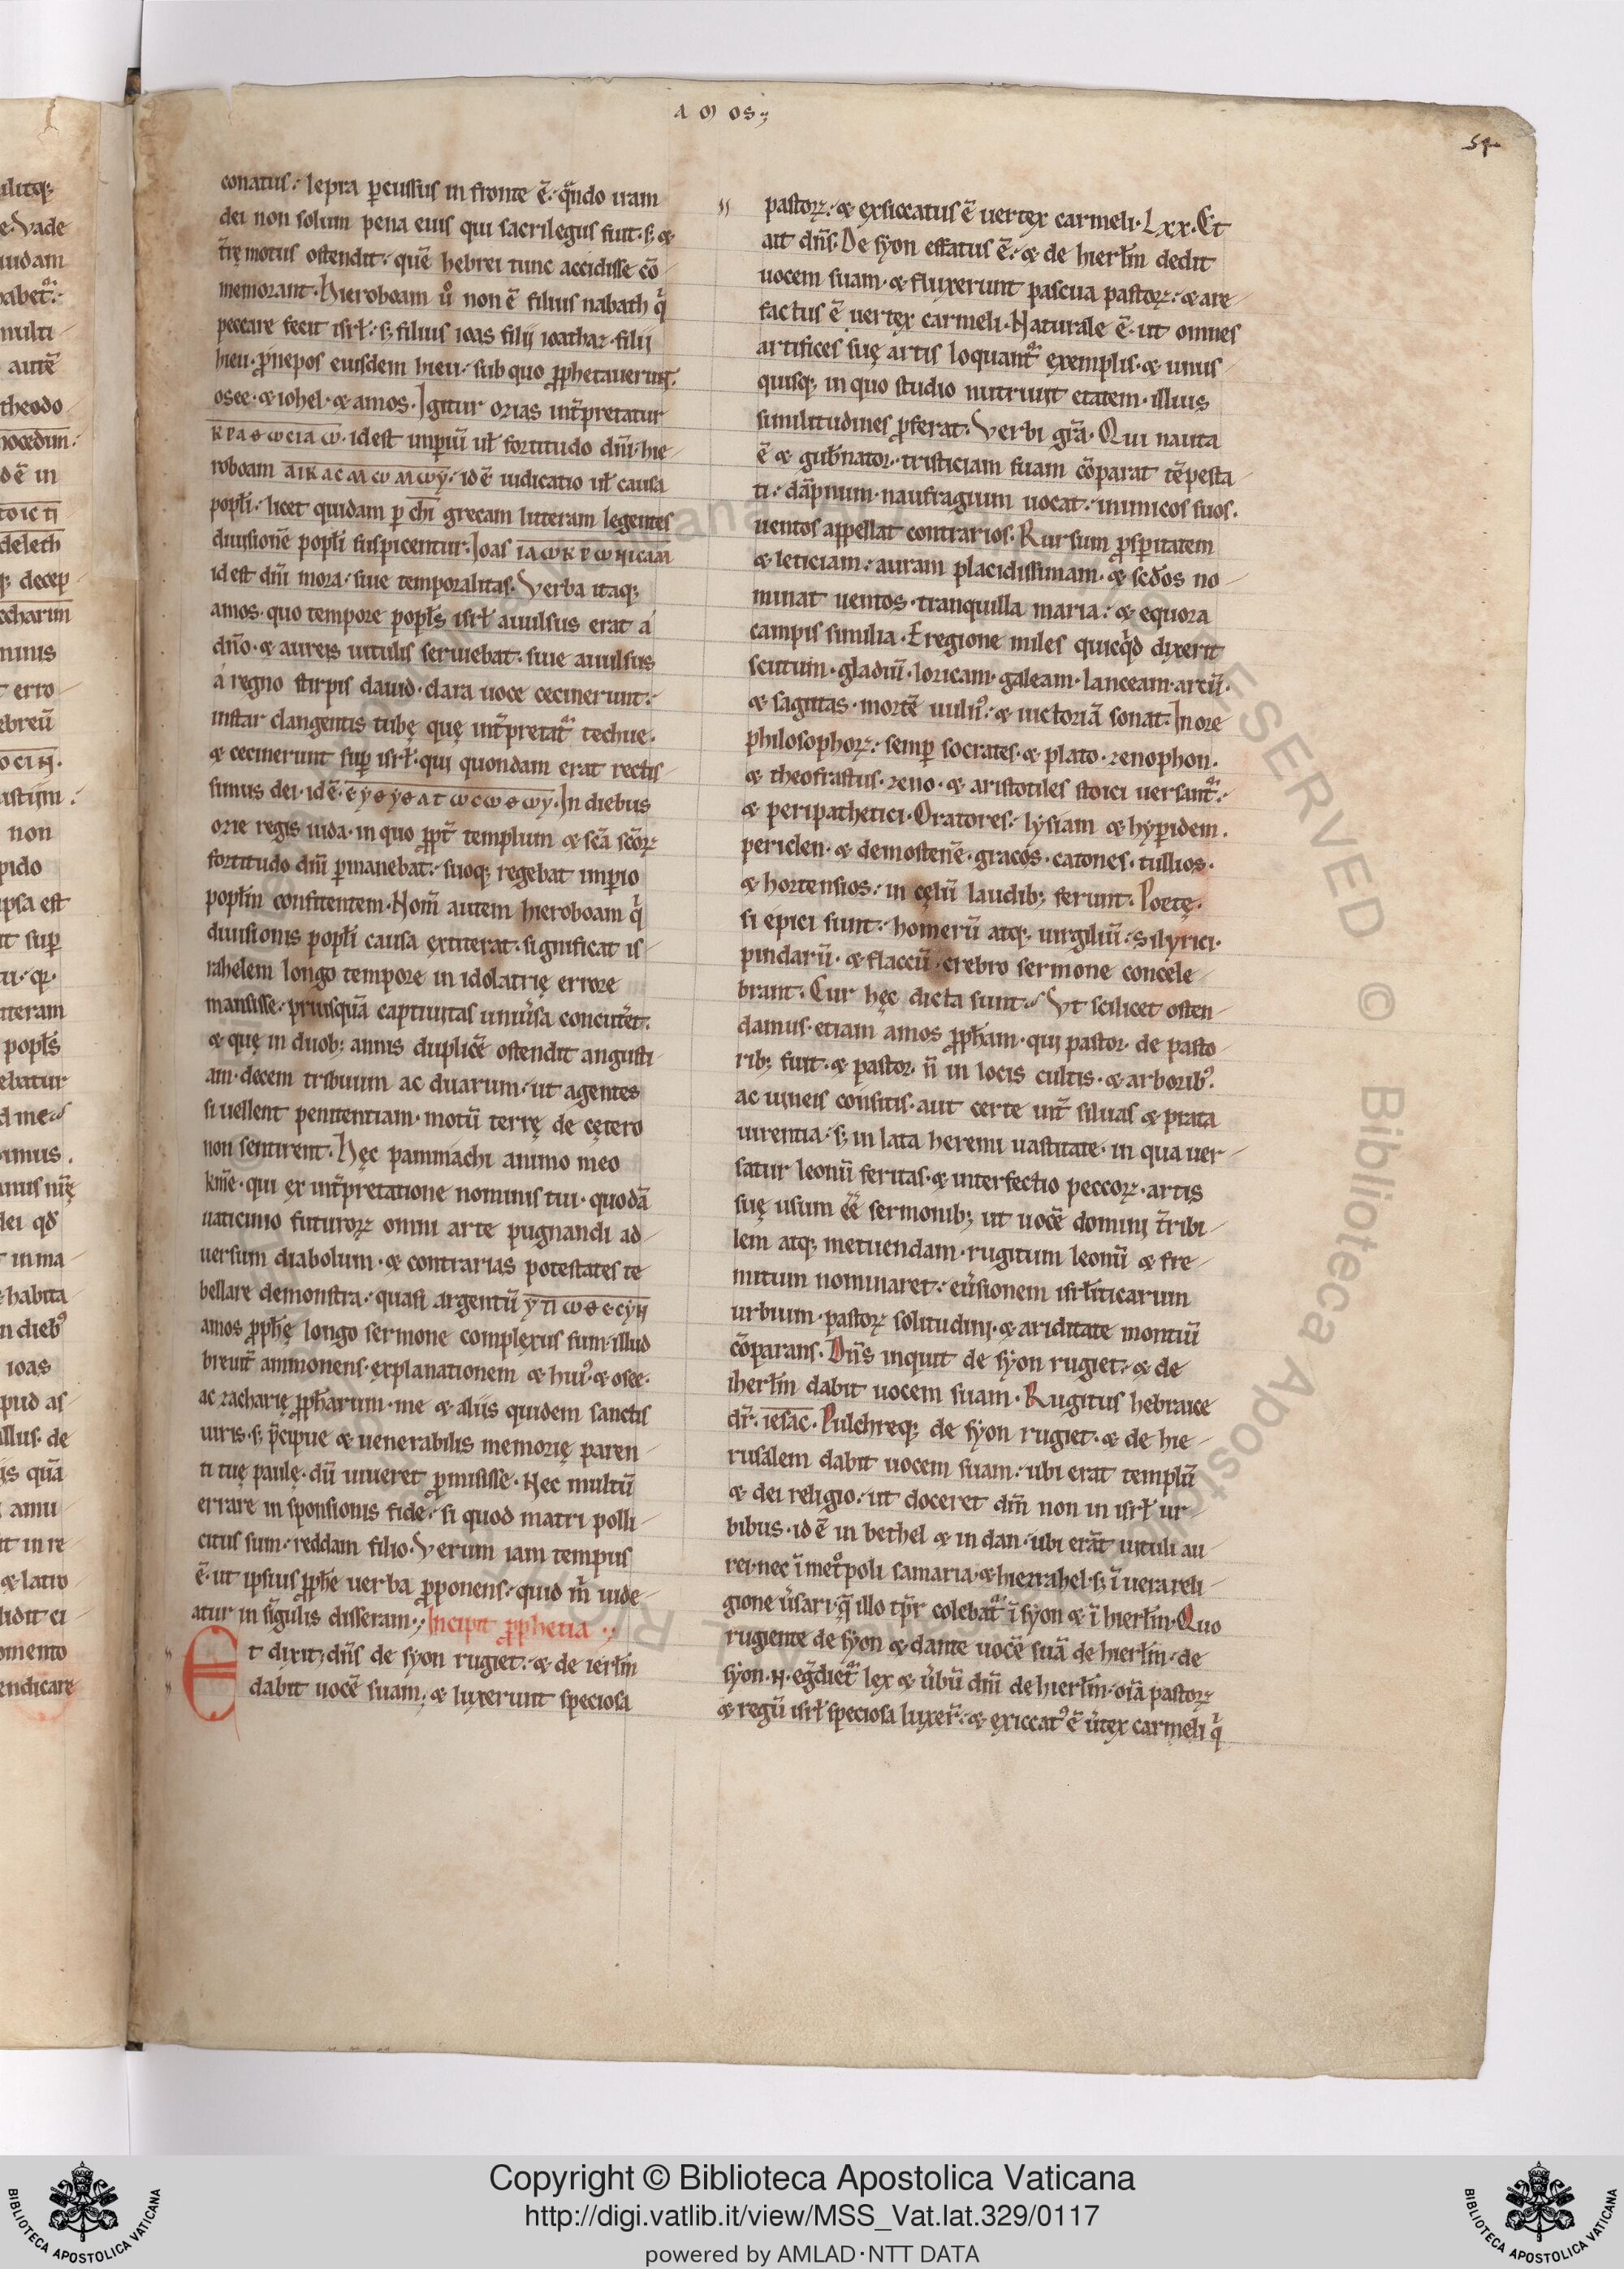 AMOS
conatus: lepra ꝑcussus in fronte ē: qͣndo iram
dei non solum pena eius qui sacrilegus fuit. s; &
t̄rę motus ostendit: quē hebrei tunc accidisse cō
memorant. Hieroboam ů non ē filius nabath q̇
peccare fecit isrł: s; filius ioas filii ioathaz. filii
hieu. p̄nepos eiusdem hieu. sub quo ꝓphetauerunt
osee. & iohel. & amos. Igitur ozias int̄pretatur
idest impiū uł fortitudo dn̄i. hie
roboam idē iudicatio uł causa
popłi. licet quidam p chi grecam litteram legentes
diuisionē popłi suspicentur. Ioas
id est dn̄i mora: siue temporalitas. Verba itaq;
amos. quo tempore popłs isrł auulsus erat á
dn̄o. & aureis uitulis seruiebat: siue auulsus
á regno stirpis dauid. clara uoce cecinerunt:
instar clangentis tubę quę int̄pretatͣ techue.
& cecinerunt sup isrł. qui quondam erat rectis
simus dei. idē. In diebus
ozie regis iuda. in quo ꝓpt̄ templum & scā scōꝝ
fortitudo dn̄i ꝑmanebat: suoq; regebat impio
popłm confitentem. Nom̄ autem hieroboam q̇
diuisionis popłi causa extiterat. significat is
rahelem longo tempore in idolatrię errore
mansisse. priusquā captiuitas uniūsa concut̄et.
& quę in duob; annis duplicē ostendit angusti
am. decem tribuum ac duarum. ut agentes
si uellent penitentiam. motū terrę de cętero
non sentirent. Hęc pammachi animo meo
qui ex int̄pretatione nominis tui. quodā
uaticinio futuroꝝ omni arte pugnandi ad
uersum diabolum. & contrarias potestates te
bellare demonstra: quasi argentū
amos ꝓphę longo sermone complexus sum. illud
breuit̄ ammonens. explanationem & huiꝰ & osee.
ac zacharię ꝓphetarum. me & aliis quidem sanctis
uiris. s; p̄cipue & uenerabilis memorię paren
ti tuę paulę. dū uiueret ꝓmisisse. Nec multū
errare in sponsionis fide: si quod matri polli
citus sum: reddam filio. Verum iam tempus
ē. ut ipsius ꝓphe uerba ꝓponens: quid m̄ uide
atur in singulis disseram. Incipit ꝓphetia
Et dixit; dn̄s de syon rugiet: & de ierłm
dabit uocē suam; & luxerunt speciosa
pastoꝝ: & exsiccatus ē uertex carmeli. Lxx. Et
ait dn̄s. De syon effatus ē: & de hierłm dedit
uocem suam. & fluxerunt pascua pastoꝝ: & are
factus ē uertex carmeli. Naturale ē. ut omnes
artifices suę artis loquantͣ exemplis. & unus
quisq; in quo studio nutriuit etatem. illius
similitudines ꝓferat. Verbi grā. Qui nauta
ē & gub̄nator. tristiciam suam cōparat tēpesta
ti: dāpnum. naufragium uocat: inimicos suos.
uentos appellat contrarios. Rursum ꝓspitatem
& leticiam: auram placidissimam. & scd̄os no
minat uentos. tranquilla maria: & equora
campis similia. Eregione miles quicq̇d dixerit
scutum. gladiū. loricam. galeam. lanceam. arcū.
& sagittas. mortē uulnꝰ: & uictoriā sonat. In ore
philosophoꝝ: semp socrates. & plato. xenophon.
& theofrastus. zeno. & aristotiles stoici uersantͣ:
& peripathetici. Oratores: lysiam & hypidem.
periclen. & demostenē. gracos. catones. tullios.
& hortensios: in cęlū laudib; ferunt. Poetę.
si epici sunt: homerū atq; uirgiliū: silyrici.
pindarū. & flaccū. crebro sermone concele
brant. Cur hęc dicta sunt? Vt scilicet osten
damus. etiam amos ꝓpham. qui pastor de pasto
rib; fuit. & pastor. n̄ in locis cultis. & arboribꝰ.
ac uineis consitis. aut certe int̄ siluas & prata
uirentia: s; in lata heremi uastitate. in qua uer
satur leonū feritas. & interfectio peccoꝝ. artis
suę usum eē sermonib; ut uocē domini t̄ribi
lem atq; metuendam. rugitum leonū & fre
mitum nominaret: eūsionem isrłiticarum
urbium. pastoꝝ solitudini. & ariditate montiū
cōparans. Dn̄s inquit de syon rugiet: & de
iherłm dabit uocem suam. Rugitus hebraice
dr̄. iesac. Pulchreq; de syon rugiet. & de hie
rusalem dabit uocem suam: ubi erat templū
& dei religio: ut doceret dm̄ non in isrł ur
bibus. idē in bethel & in dan. ubi erāt uituli au
rei. nec ī met°poli samaria. & hiezrahel. s; ī uera reli
gione ūsari. q̄ illo tp̄r colebatͣ ī syon & ī hierłm. Quo
rugiente de syon & dante uocē suā de hierłm. de
syon .N. eg̃dietͣ lex & ūbū dn̄i de hierłm. oīa pastoꝝ
& regū isrł speciosa luxer̄: & exiccatꝰ ē ūtex carmeli q̇
Copyright © Biblioteca Apostolica Vaticana
http://digi.vatlib.it/view/MSS_Vat.lat.329/0117
powered by AMLAD·NTT DATA
BIBLIOTECA APOSTOLICA VATICANA
BIBLIOTECA APOSTOLICA VATICANA